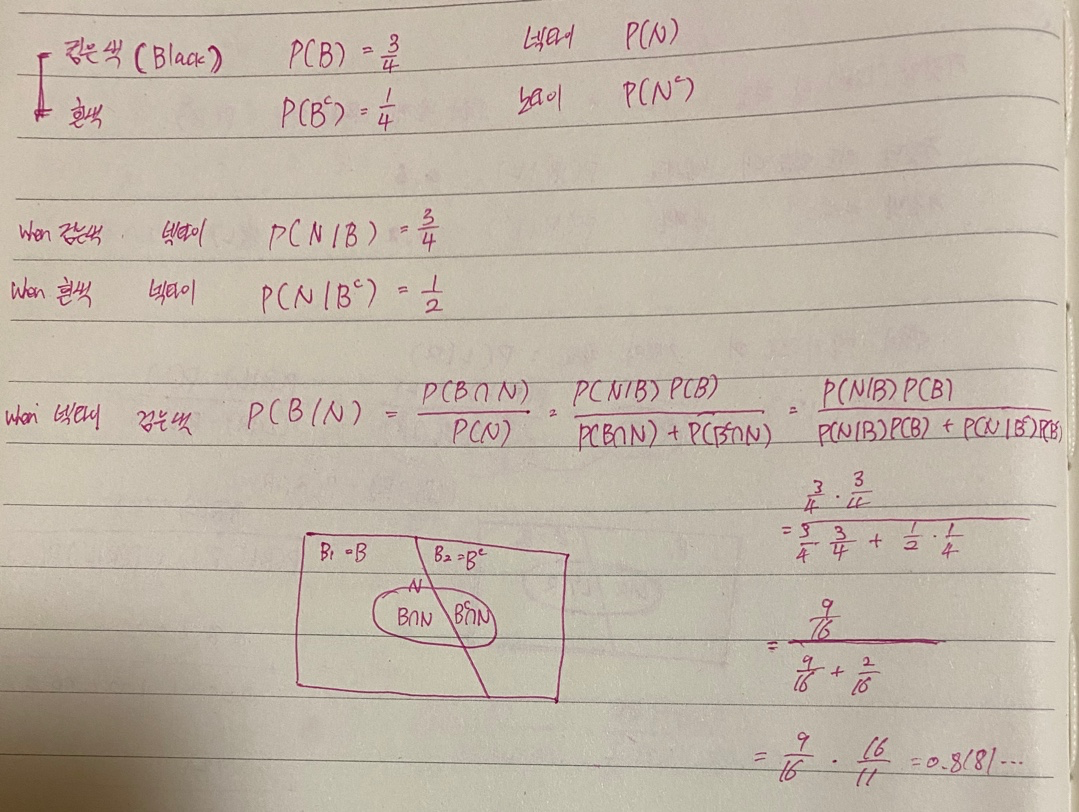 검은색 (Black) P(B) = 3/4 넥타이 P(N)
흰색 P(Bᶜ) = 1/4 P(Nᶜ)
When 검은색 넥타이 P(N|B) = 3/4
When 흰색 넥타이 P(N|Bᶜ) = 1/2
When 넥타이 검은색 P(B|N) = P(B∩N) / P(N) = P(N|B) P(B) / P(B∩N) + P(Bᶜ∩N) = P(N|B) P(B) / P(N|B)P(B) + P(N|Bᶜ)P(Bᶜ)
= 3/4 · 3/4 / 3/4 3/4 + 1/2 · 1/4
B₁ = B B₂ = Bᶜ
N
B∩N Bᶜ∩N
= 9/16 / 9/16 + 2/16
= 9/16 · 16/11 = 0.8181...